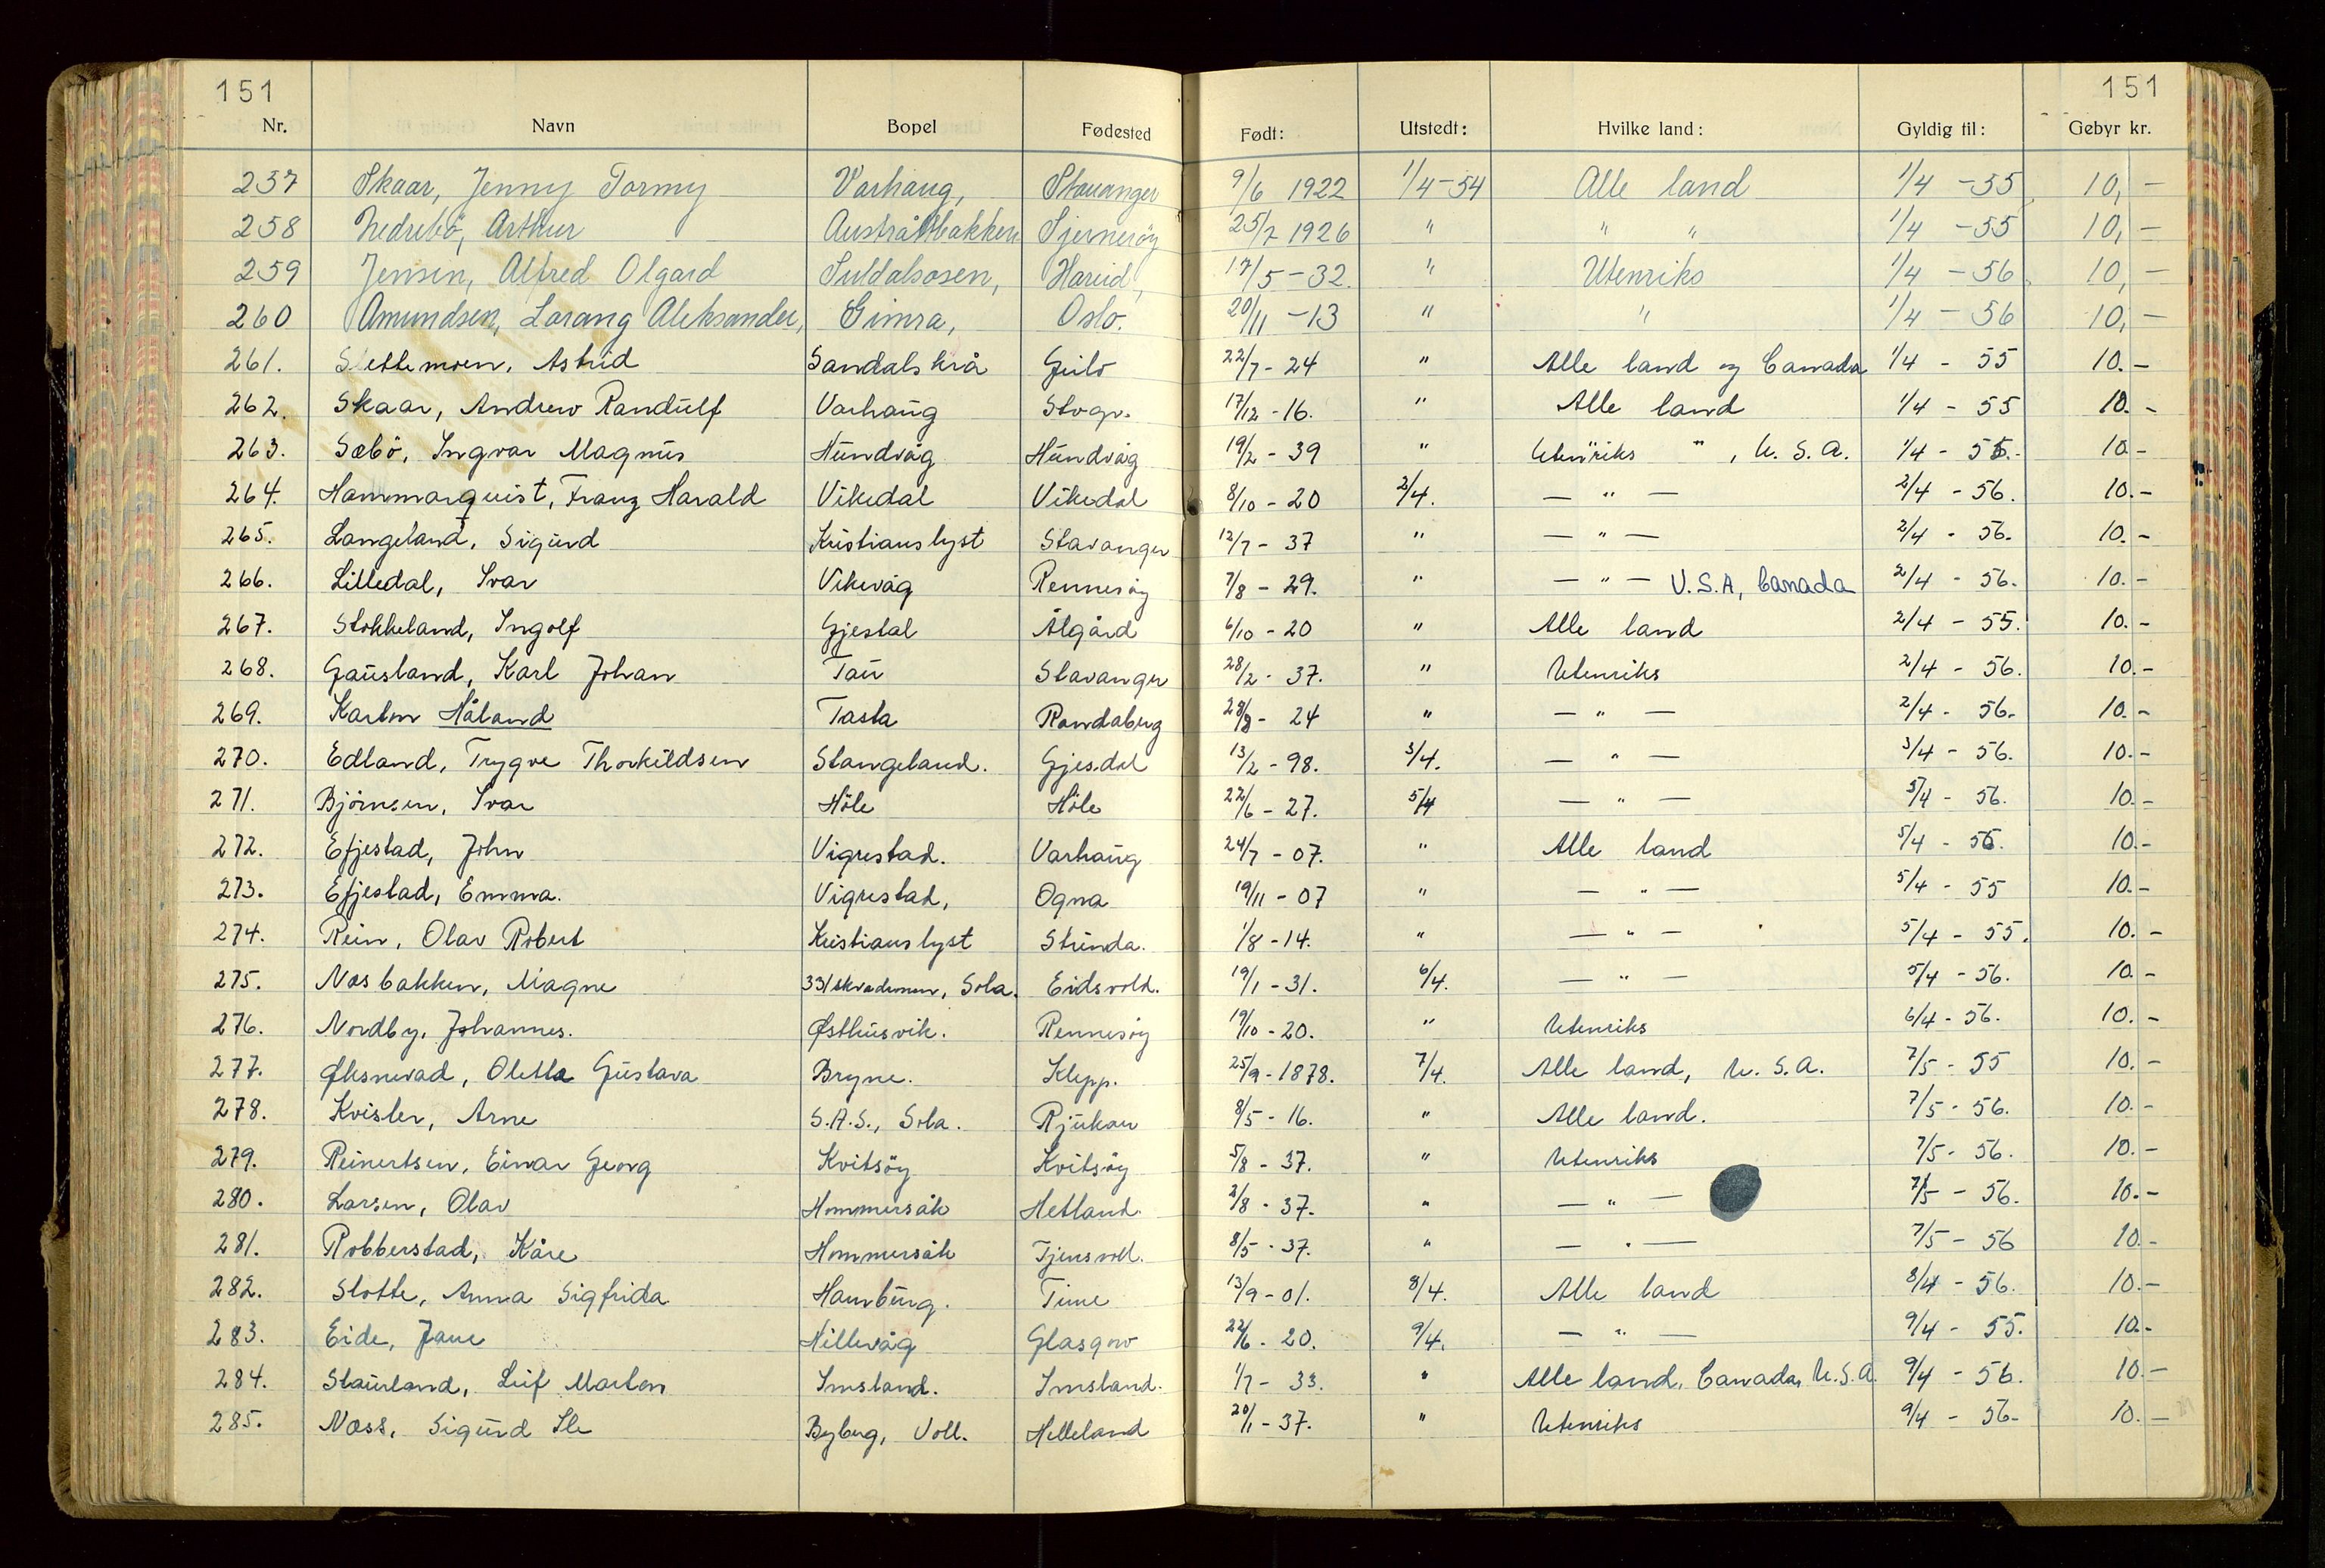 151 151
Nr. Navn Bopel Fødested Født: Utstedt: Hvilke land: Gyldig til: Gebyr kr.
237 Skaar, Jenny Tormy Varhaug, Stavanger 9/6 1922 1/4-54 Alle land 1/4 - 55 10,-
258 Nedrebö, Arthur Austråttbakken Sjerneröy 25/7 1926 " " " 1/4 - 55 10,-
259 Jensen, Alfred Olgard Suldalsosen, Hareid, 17/5-32. " Utenriks 1/4 - 56. 10,-
260 Amundsen, Lorang Aleksander, Gimra, Oslo. 20/11 -13 " " 1/4 - 56 10,-
261. Slettemoen, Astrid Sandalskrå Geilo 22/7- 24 " Alle land og Canada 1/4 - 55 10.-
262. Skaar, Andrew Randulf Varhaug Stvgr. 17/12 -16. " Alle land 1/4 - 55 10.-
263. Sæbö, Ingvar Magnus Hundvåg Hundvåg 19/2 - 39 " Utenriks " , U.S.A. 1/4 - 55.- 10.-
264. Hammarquist, Franz Harald Vikedal Vikedal 8/10 - 20 2/4. — " — 2/4 - 56. 10.-
265. Langeland, Sigurd Kristianslyst Stavanger 12/7 - 37 " — " — 2/4 - 56. 10.-
266. Lilledal, Ivar Vikevåg Rennesöy 7/8 - 29. " — " — U.S.A, Canada 2/4 - 56. 10.-
267. Stokkeland, Ingolf Gjestal Ålgård 6/10 - 20 " Alle land 2/4 - 55. 10.-
268. Gausland, Karl Johan Tau Stavanger 28/2 - 37. " Utenriks 2/4 - 56. 10.-
269. Karlm Håland Tasta Randaberg 28/8 - 24 " — " — 2/4 - 56- 10.-
270. Edland, Trygve Thorkildsen Stangeland. Gjesdal 13/2 - 98. 3/4. — " — 3/4 - 56. 10.-
271. Björnsen, Ivar Höle Höle 22/6 - 27. 5/4 — " — 5/4 - 56. 10.-
272. Efjestad, John Vigrestad. Varhaug 24/7 - 07. " Alle land 5/4 - 56. 10.-
273. Efjestad, Emma. Vigrestad, Ogna 19/11 - 07 " — " — 5/4 - 55 10.-
274. Rein, Olav Robert Kristianslyst Strinda. 1/8 -14. " — " — 5/4 - 55. 10.-
275. Næsbakken, Magne 331 skvadronen, Sola. Eidsvold. 19/1 -31. 6/4. — " — 5/4 - 56. 10.-
276. Nordby, Johannes. Østhusvik. Rennesöy 19/10 -20. " Utenriks 6/4 - 56. 10.-
277. Øksnevad, Oletta Gustava Bryne. Klepp. 25/9 -1878. 7/4. Alle land, U.S.A. 7/5 - 55 10.-
278. Kvisler, Arne S.A.S., Sola. Rjukan 8/5 - 16. " Alle land. 7/5 - 56. 10.-
279. Reinertsen, Einar Georg Kvitsöy Kvitsöy 5/8 - 37. " Utenriks 7/5 - 56. 10.-
280. Larsen, Olav Hommersåk Hetland. 2/8 - 37. " — " — 7/5 - 56. 10.-
281. Robberstad, Kåre Hommersåk Tjensvoll. 8/5 - 37. " — " — 7/5 - 56 10.-
282. Slotte, Anna Sigfrida Hamburg. Time 13/9 - 01. 8/4. Alle land 8/4 - 56. 10.-
283. Eide, Jane Hillevåg Glasgow 22/6 - 20. 9/4. — " — 9/4 - 55. 10.-
284. Staurland, Leif Morten Imsland. Imsland. 1/7 - 33. " Alle land, Canada, U.S.A. 9/4 - 56. 10.-
285. Næss, Sigurd Ile Byberg, Voll. Helleland 20/1 -37. " Utenriks 9/4 - 56- 10.-